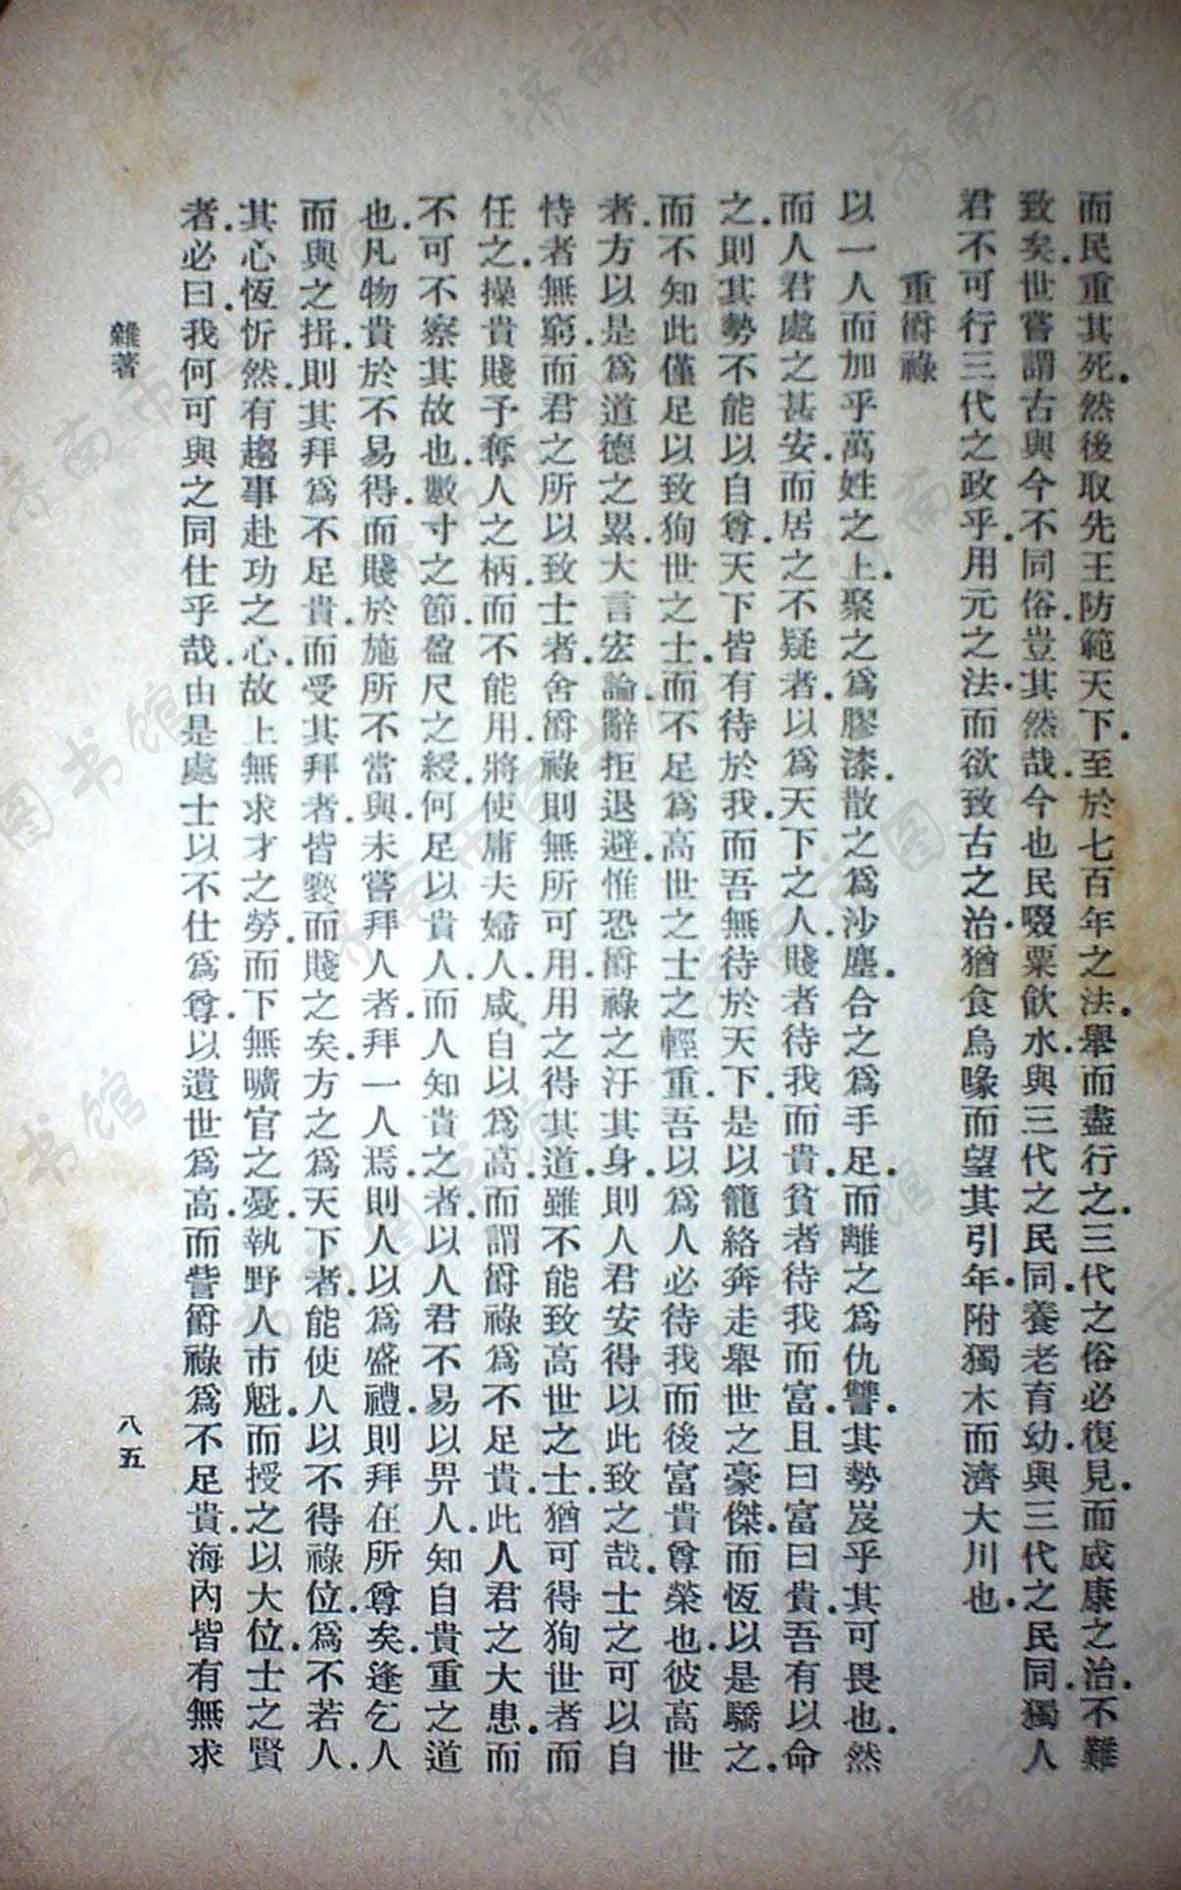 而民重其死.然後取先王防範天下.至於七百年之法.舉而盡行之.三代之俗必復見.而成康之治.不難
致矣.世嘗謂古與今不同俗.豈其然哉.今也民啜粟飲水.與三代之民同.養老育幼.與三代之民同.獨人
君不可行三代之政乎.用元之法.而欲致古之治.猶食烏喙而望其引年.附獨木而濟大川也.
重爵祿
以一人而加乎萬姓之上.聚之爲膠漆.散之爲沙塵.合之爲手足.而離之爲仇讐.其勢岌乎其可畏也.然
而人君處之甚安.而居之不疑者.以爲天下之人.賤者待我而貴.貧者待我而富.且曰富曰貴.吾有以命
之.則其勢不能以自尊.天下皆有待於我.而吾無待於天下.是以籠絡奔走舉世之豪傑.而恆以是驕之.
而不知此僅足以致狥世之士.而不足爲高世之士之輕重.吾以爲人必待我而後富貴尊榮也.彼高世
者.方以是爲道德之累.大言宏論.辭拒退避.惟恐爵祿之汙其身.則人君安得以此致之哉.士之可以自
恃者無窮.而君之所以致士者.舍爵祿則無所可用.用之得其道.雖不能致高世之士.猶可得狥世者而
任之.操貴賤予奪人之柄.而不能用.將使庸夫婦人.咸自以爲高.而謂爵祿爲不足貴.此人君之大患.而
不可不察其故也.數寸之節.盈尺之綬.何足以貴人.而人知貴之者.以人君不易以畀人.知自貴重之道
也.凡物貴於不易得.而賤於施所不當與.未嘗拜人者.拜一人焉.則人以爲盛禮.則拜在所尊矣.逢乞人
而與之揖.則其拜爲不足貴.而受其拜者.皆褻而賤之矣.方之爲天下者.能使人以不得祿位.爲不若人.
其心恆忻然.有趨事赴功之心.故上無求才之勞.而下無曠官之憂.執野人市魁.而授之以大位.士之賢
者.必曰.我何可與之同仕乎哉.由是處士以不仕爲尊.以遺世爲高.而訾爵祿爲不足貴.海內皆有無求
雜著
八五